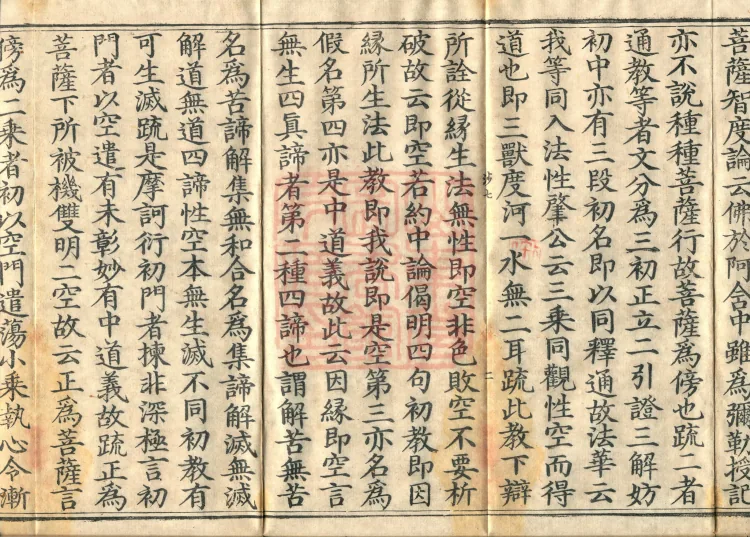 菩薩智度論云佛於阿含中雖為彌勒授記
亦不說種種菩薩行故菩薩為傍也疏二者
通教等者文分為三初正立二引證三解妨
初中亦有三段初名即以同釋通故法華云
我等同入法性肇公云三乘同觀性空而得
道也即三獸度河一水無二耳疏此教下辯
所詮從緣生法無性即空非色敗空不要析
破故云即空若約中論偈明四句初教即因
緣所生法此教即我說即是空第三亦名為
假名第四亦是中道義故此云因緣即空言
無生四真諦者第二種四諦也謂解苦無苦
名為苦諦解集無和合名為集諦解滅無滅
解道無道四諦性空本無生滅不同初教有
可生滅疏是摩訶衍初門者揀非深極言初
門者以空遣有未彰妙有中道義故疏正為
菩薩下所被機雙明二空故云正為菩薩言
傍為二乘者初以空門遣蕩小乘執心令漸